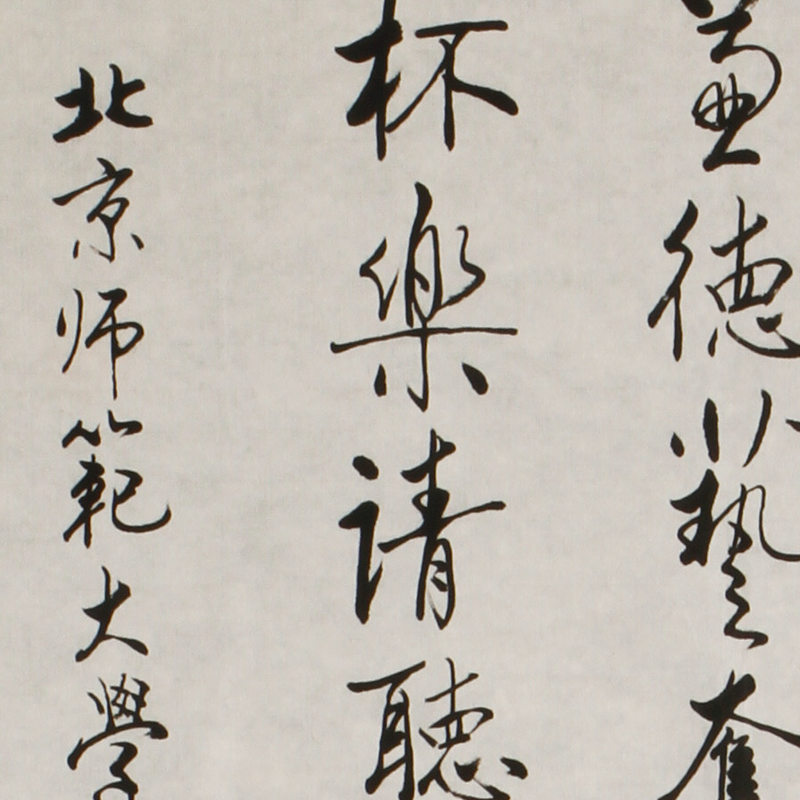 德藝奮
杯樂请聽
北京师範大學